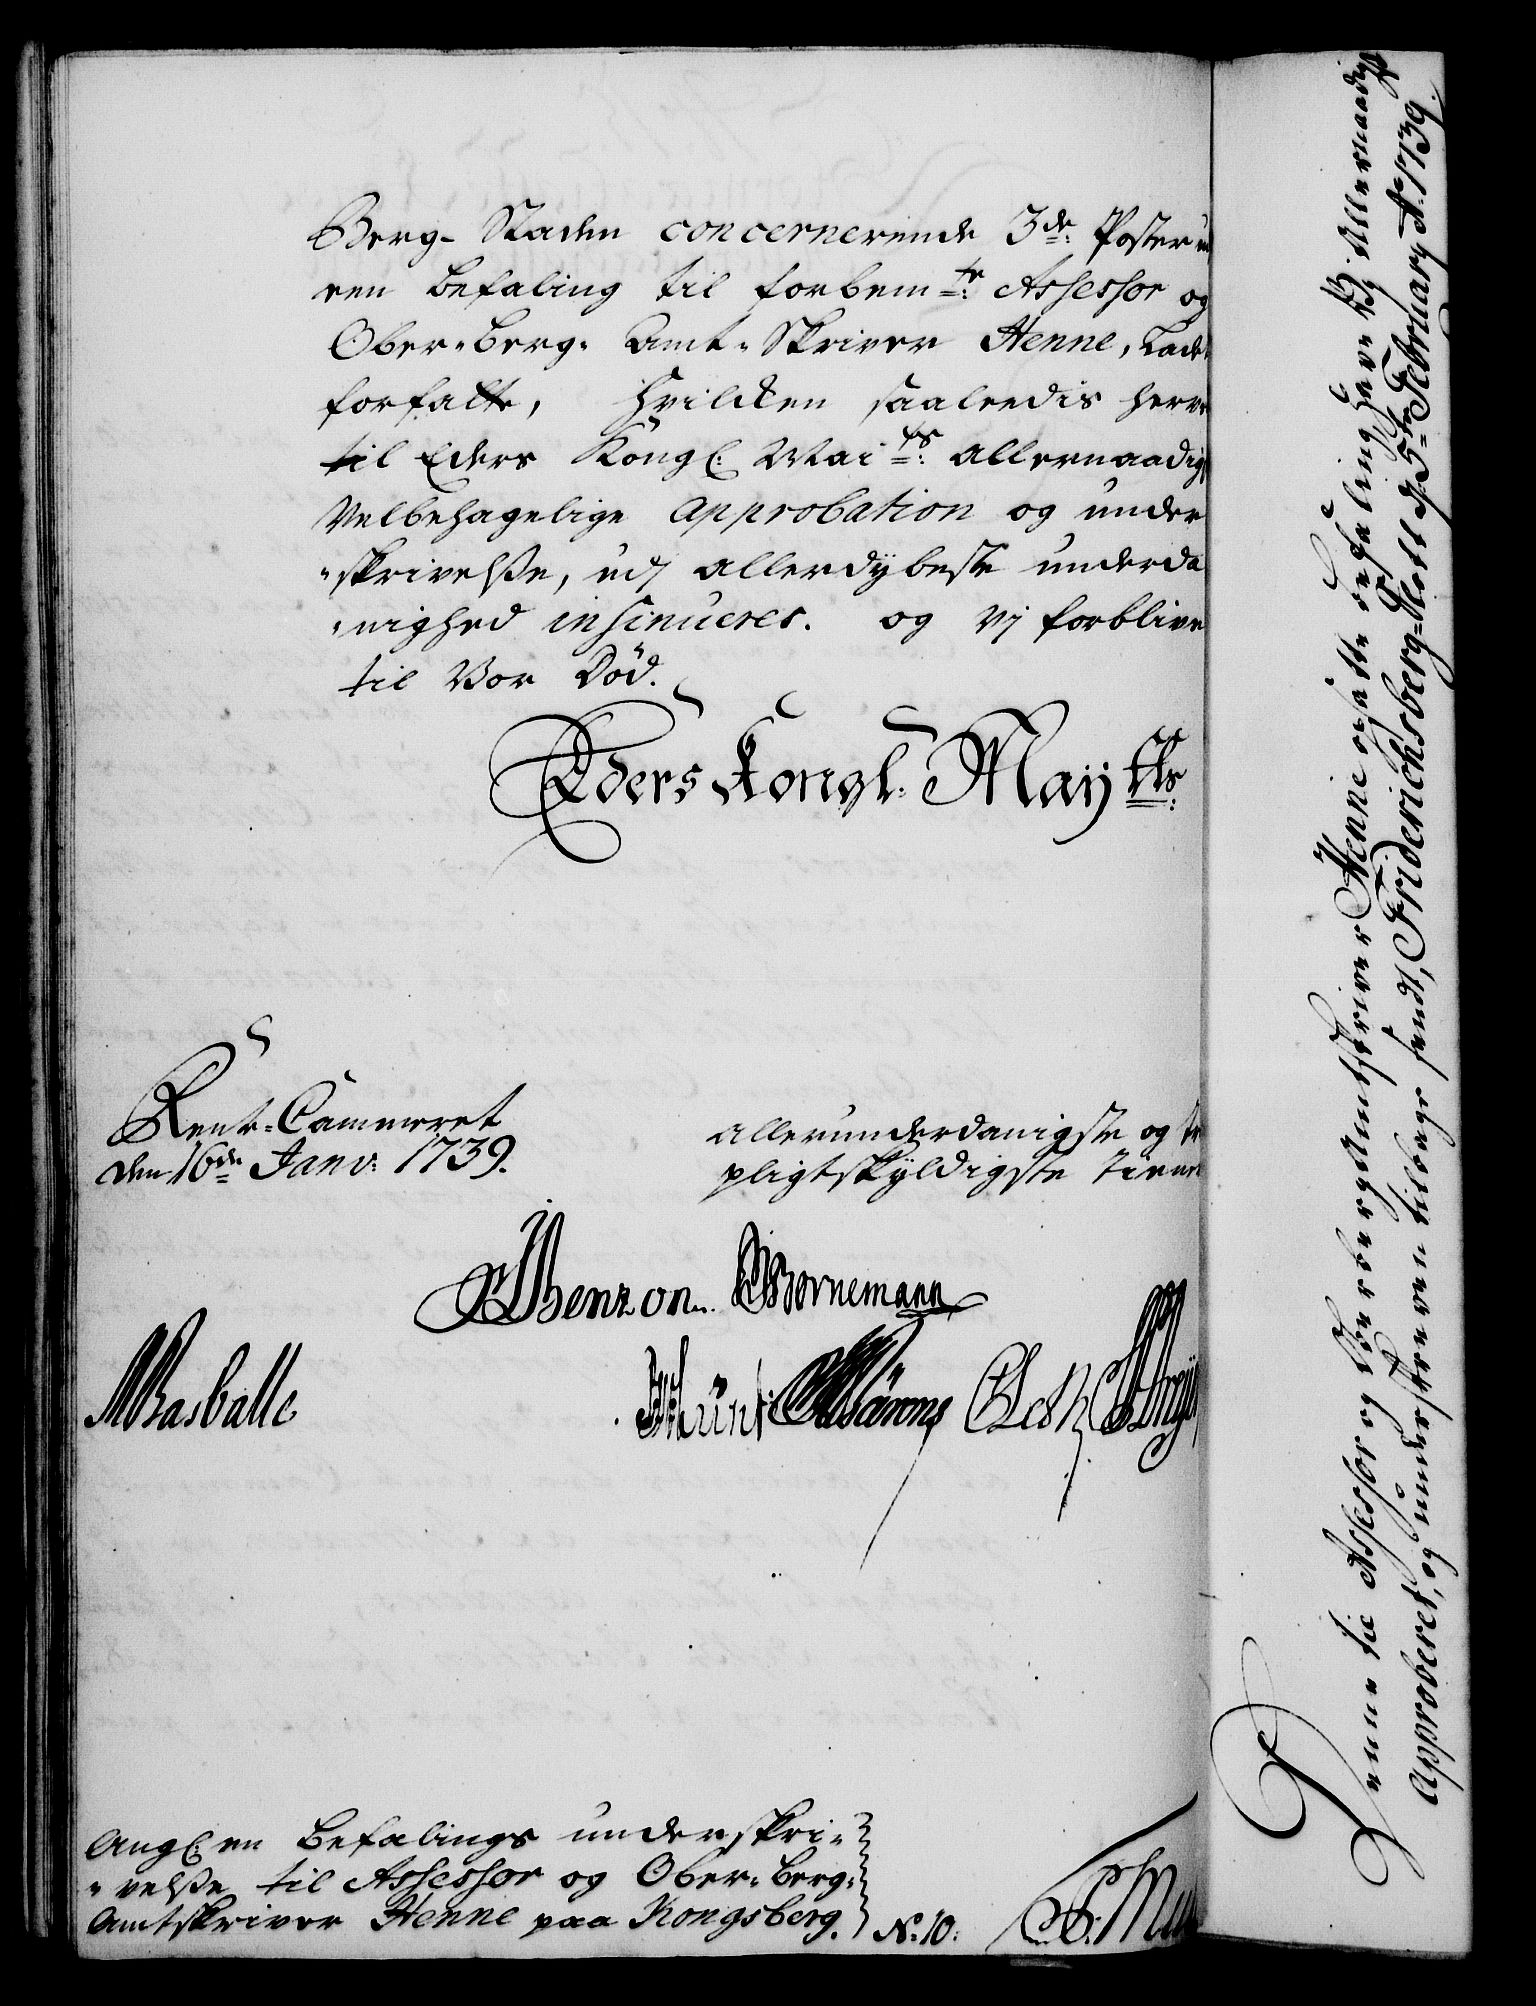 Berg- Staden concernerende 3de: Poster
een befaling til forbemte: Assessor og
Ober-berg- Amt-Skriver Henne, Lade
forfatte, Hvilcken saaleedis herved
til Eders Kongl: Maits: allernaadigst
Velbehagelige approbation og under
-skrivelße, udj allerdybeste underda
-nighed insinueres. og vj forblive
til Vor Död.
Eders Kongl: Maytts:
Rent-Cammeret
den 16de Janv: 1739.
allerunderdanigste og
pligtskyldigste Tienere
Benzon. Bornemann
MBasballe
Angl: en befalings underskri-
-velße til Assessor og Ober-berg-
Amtskriver Henne paa Kongsberg.
N: 10:
Denne til Assessor og Oberbergamtskriver Henne opsatte befaling have Vj Allernaadigst
Approberet, og underskreven tilbage sendt, Friderichsberg-Slott d 5te February Ao 1739.